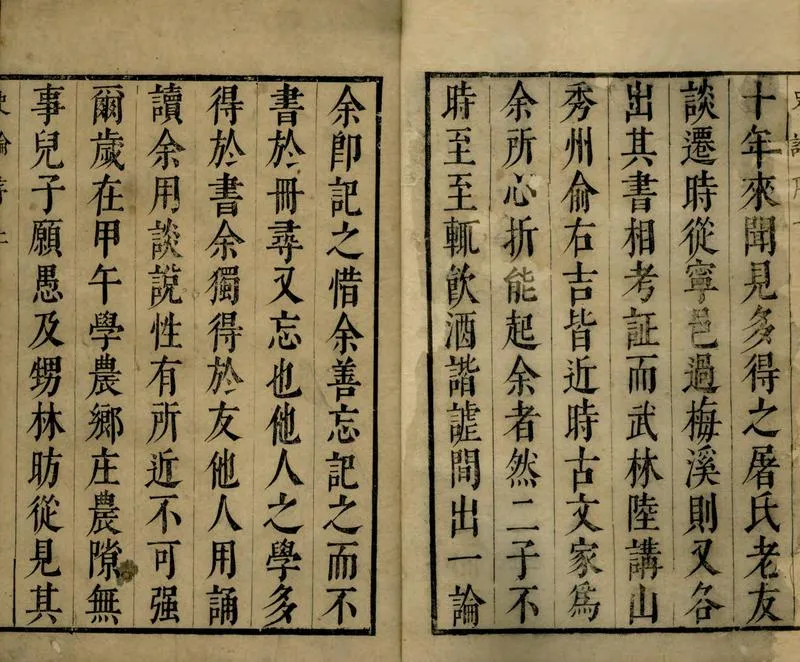 十年來聞見多得之屠氏老友
談遷時從寧邑過梅溪則又各
出其書相考証而武林陸講山
秀州俞右吉皆近時古文家爲
余所心折能起余者然二子不
時至至輒飲酒諧謔間出一論
余卽記之惜余善忘記之而不
書於冊尋又忘也他人之學多
得於書余獨得於友他人用誦
讀余用談說性有所近不可强
爾歲在甲午學農鄉庄農隙無
事兒子願愚及甥林昉從見其